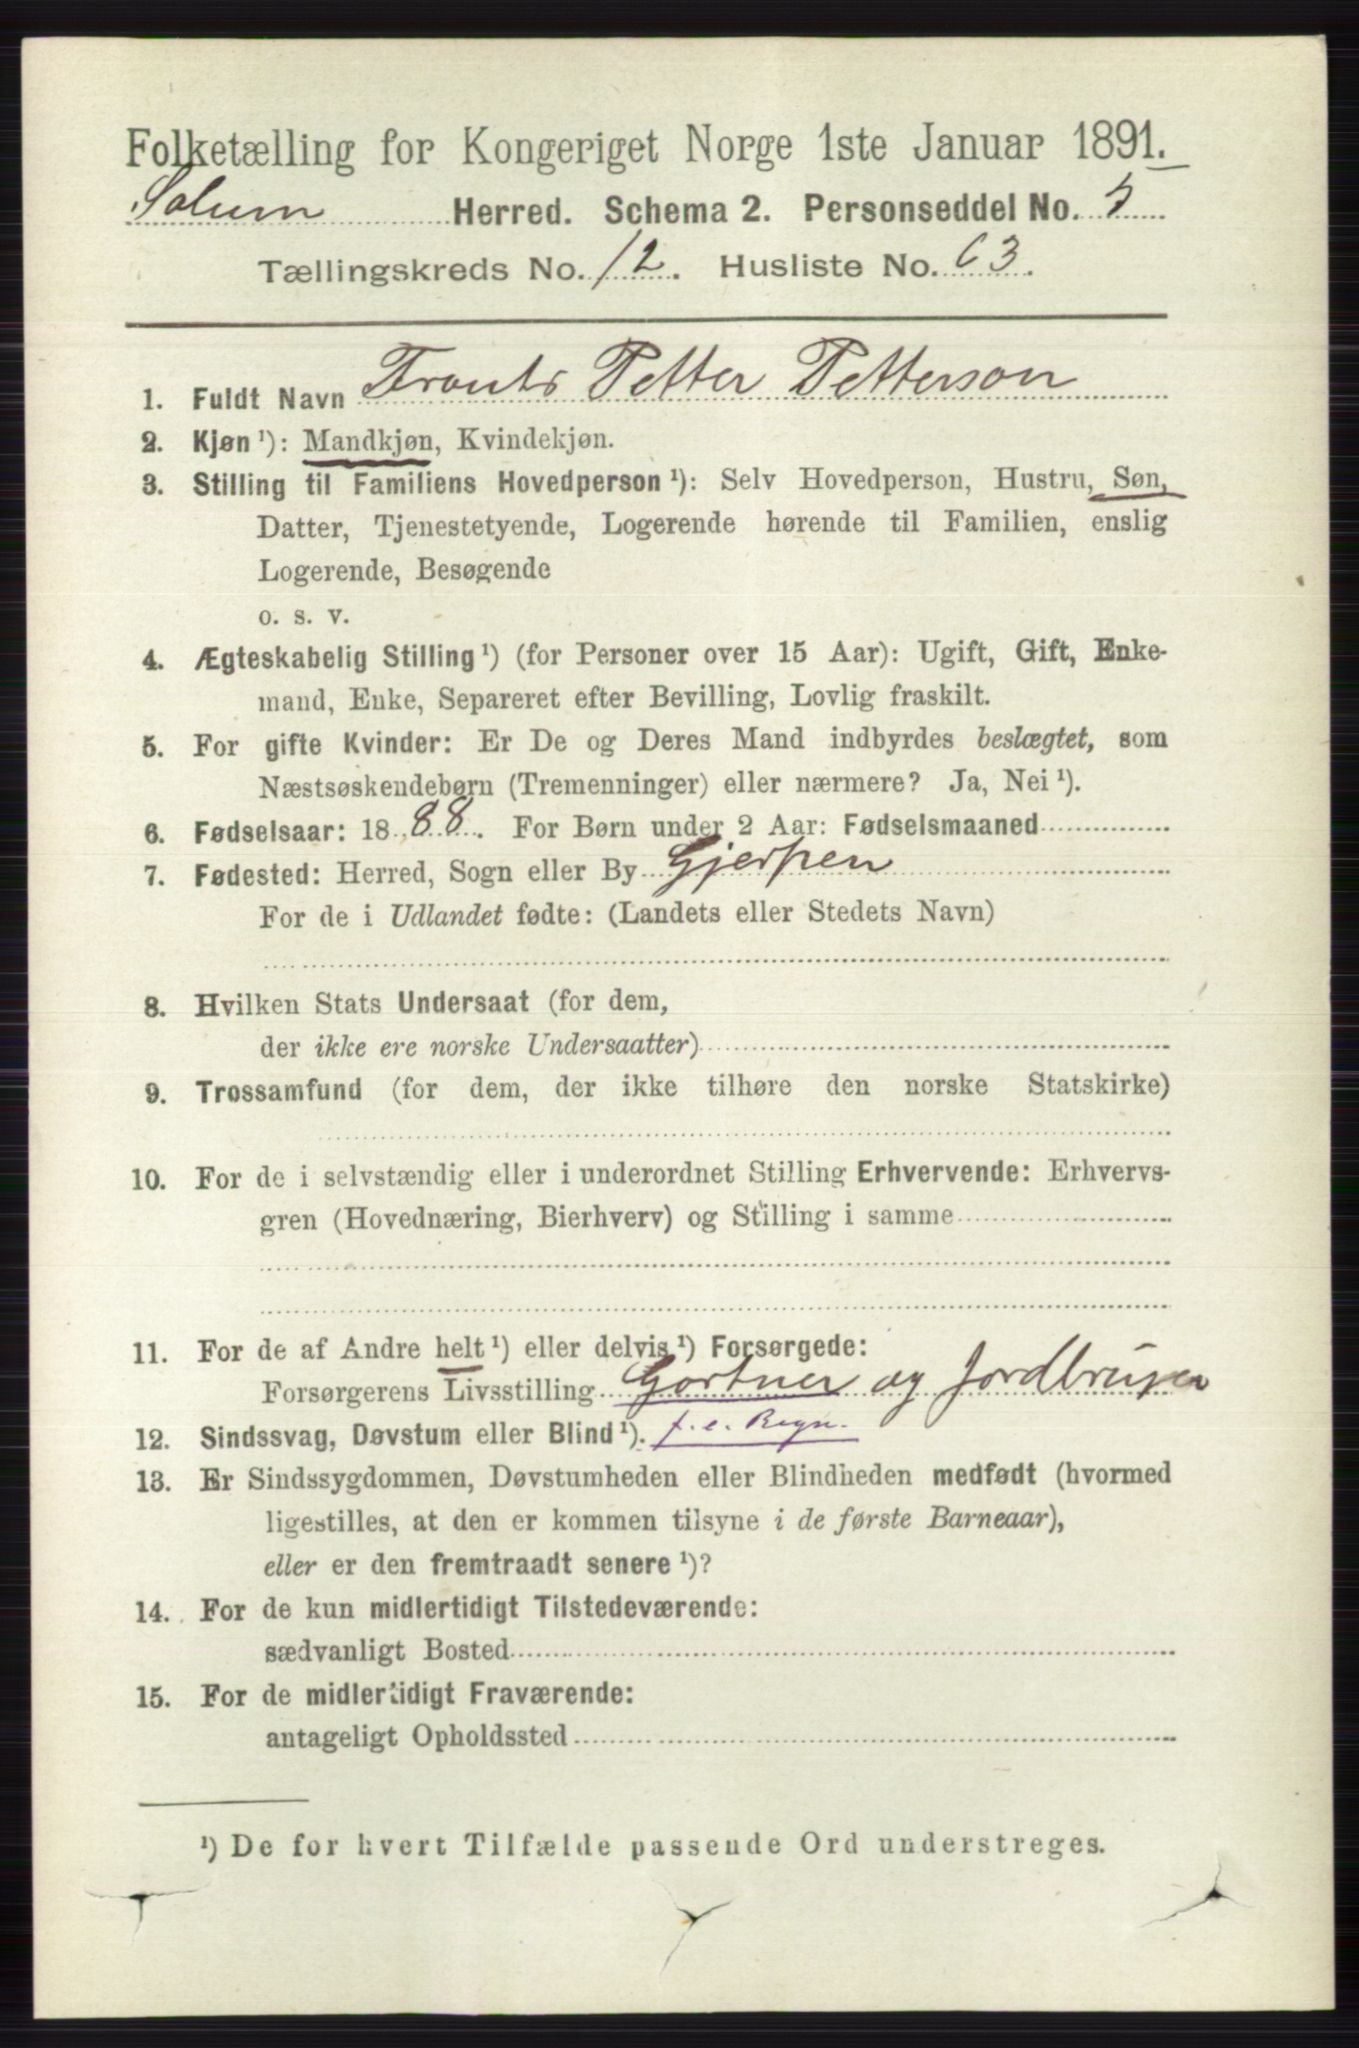 Folketælling for Kongeriget Norge 1ste Januar 1891.
Solum Herred. Schema 2. Personseddel No. 5
Tællingskreds No. 12. Husliste No. 63.
1. Fuldt Navn Frants Petter Petterson
2. Kjøn ¹): Mandkjøn, Kvindekjøn.
3. Stilling til Familiens Hovedperson ¹): Selv Hovedperson, Hustru, Søn,
Datter, Tjenestetyende, Logerende hørende til Familien, enslig
Logerende, Besøgende
o. s. v.
4. Ægteskabelig Stilling ¹) (for Personer over 15 Aar): Ugift, Gift, Enke-
mand, Enke, Separeret efter Bevilling, Lovlig fraskilt.
5. For gifte Kvinder: Er De og Deres Mand indbyrdes beslægtet, som
Næstsøskendebørn (Tremenninger) eller nærmere? Ja, Nei ¹).
6. Fødselsaar: 1888. For Børn under 2 Aar: Fødselsmaaned
7. Fødested: Herred, Sogn eller By Gjerpen
For de i Udlandet fødte: (Landets eller Stedets Navn)
8. Hvilken Stats Undersaat (for dem,
der ikke ere norske Undersaatter)
9. Trossamfund (for dem, der ikke tilhøre den norske Statskirke)
10. For de i selvstændig eller i underordnet Stilling Erhvervende: Erhvervs-
gren (Hovednæring, Bierhverv) og Stilling i samme
11. For de af Andre helt ¹) eller delvis ¹) Forsørgede:
Forsørgerens Livsstilling Gartner og Jordbruger
f. e. Regn.
12. Sindssvag, Døvstum eller Blind ¹).
13. Er Sindssygdommen, Døvstumheden eller Blindheden medfødt (hvormed
ligestilles, at den er kommen tilsyne i de første Barneaar),
eller er den fremtraadt senere ¹)?
14. For de kun midlertidigt Tilstedeværende:
sædvanligt Bosted
15. For de midlertidigt Fraværende:
antageligt Opholdssted
¹) De for hvert Tilfælde passende Ord understreges.